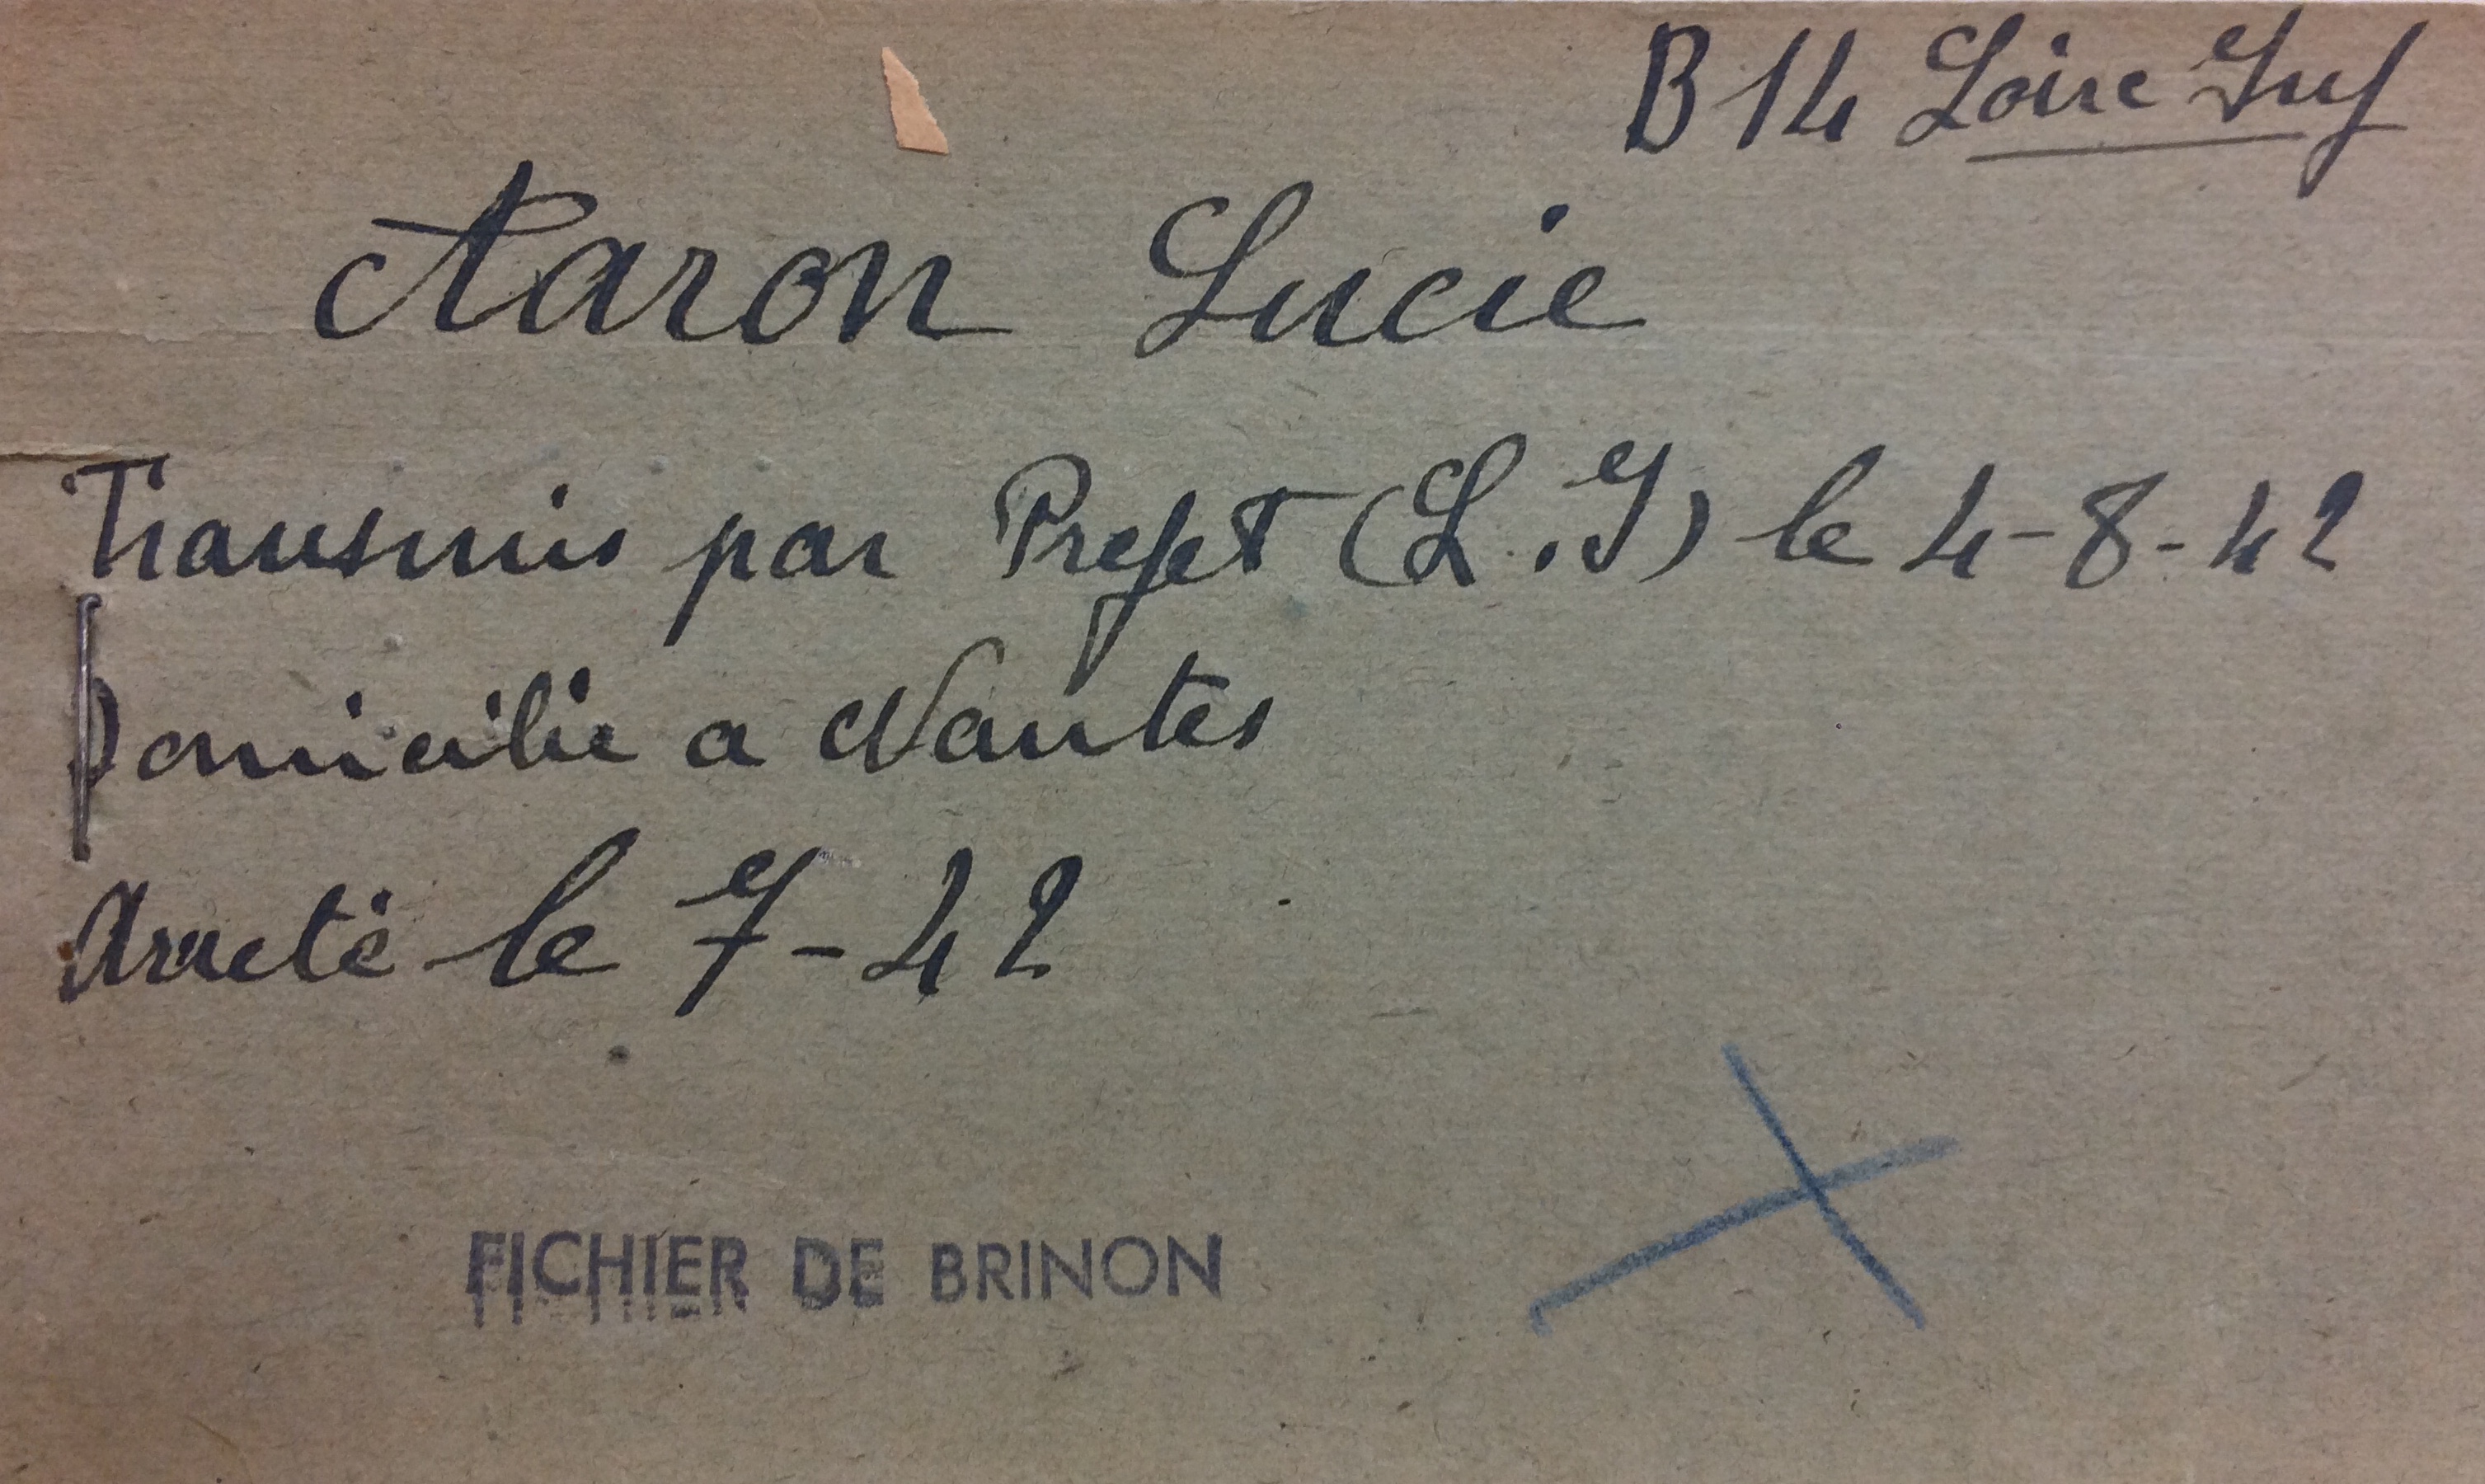 B 14 Loire Inf
Aaron Lucie
Transmis par Prefet (L.I) le 4-8-42
Domicilié a Nantes
Arreté le 7-42
FICHIER DE BRINON